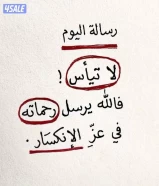 4SALE
رسالة اليوم
لا تيأس !
فالله يرسل رحماته
في عزِّ الإنكسَار .